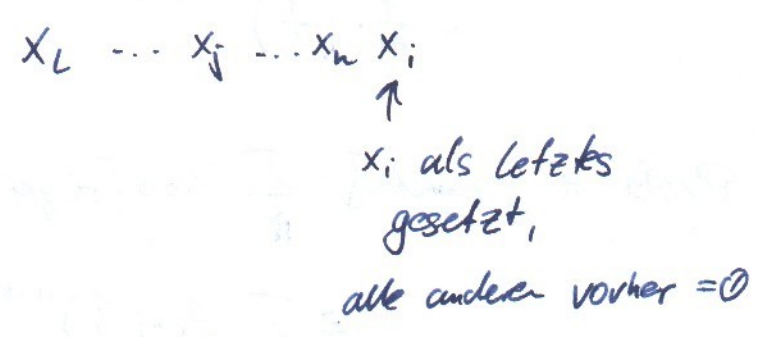 x_L ... x_j ... x_n x_i
↑
x_i als letztes
gesetzt,
alle anderen vorher = 0